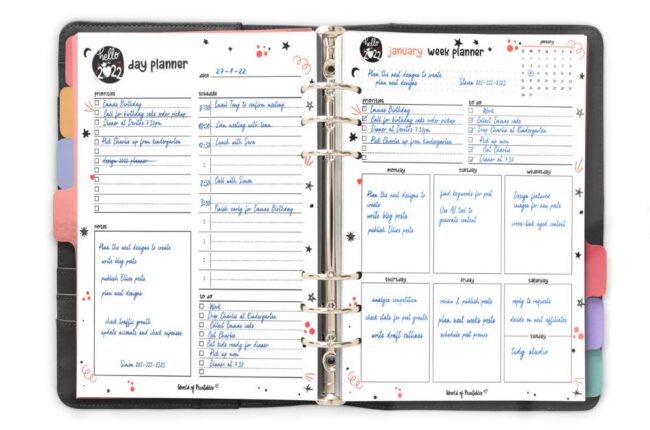 hello
2022
day planner
DATE
27-1-22
PRIORITIES
Emmas Birthday
Call for birthday cake order pickup
Dinner at 7.30pm
Pick Charlie up from kindergarten
design 2022 planner
SCHEDULE
Email Tony to confirm meeting
10:00 Zoom meeting with team
12:30 Lunch with Sara
2:30 Call with Simon
3:00
Finish early for Emmas Birthday
NOTES
Plan the next designs to
create
write blog posts
publish Ellies posts
plan next designs
check traffic growth
update accounts and check expenses
Simon 252-222-2323
TO DO
Work
Drop Charlie at Kindergarten
Collect Emmas cake
Eat Charlie
Get kids ready for dinner
Pick up mom
Dinner at 7.30
World of Printables
hello
2022
january week planner
january
Plan the next designs to create
plan next designs
Simon 252-222-2323
PRIORITIES
Emmas Birthday
Call for birthday cake order pickup
Dinner at 7.30pm
Pick Charlie up from kindergarten
TO DO
Work
Collect Emmas cake
Drop Charlie at Kindergarten
Pick up mom
Charlie
Dinner at 7.30
monday
Plan the next designs to
create
write blog posts
publish Ellies posts
tuesday
find keywords for post
Use AI tool to
generate content
wednesday
Design featured
images for new posts
cross-link aged content
thursday
analyze competition
check stats for post growth
write draft outlines
friday
review & publish posts
plan next weeks posts
schedule post promos
saturday
reply to requests
decide on next affiliates
sunday
tidy studio
World of Printables